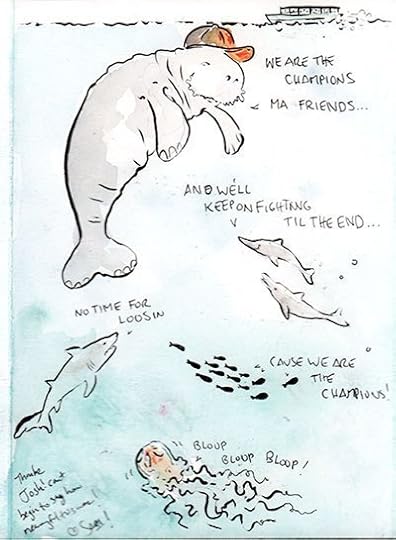 WE ARE THE
CHAMPIONS
MA FRIENDS...
AND WE'LL
KEEP ON FIGHTING
TIL THE END...
NO TIME FOR
LOOSIN
'CAUSE WE ARE
THE
CHAMPIONS!
BLOUP
BLOUP BLOUP!
Thanks
Josh! can't
begin to say how